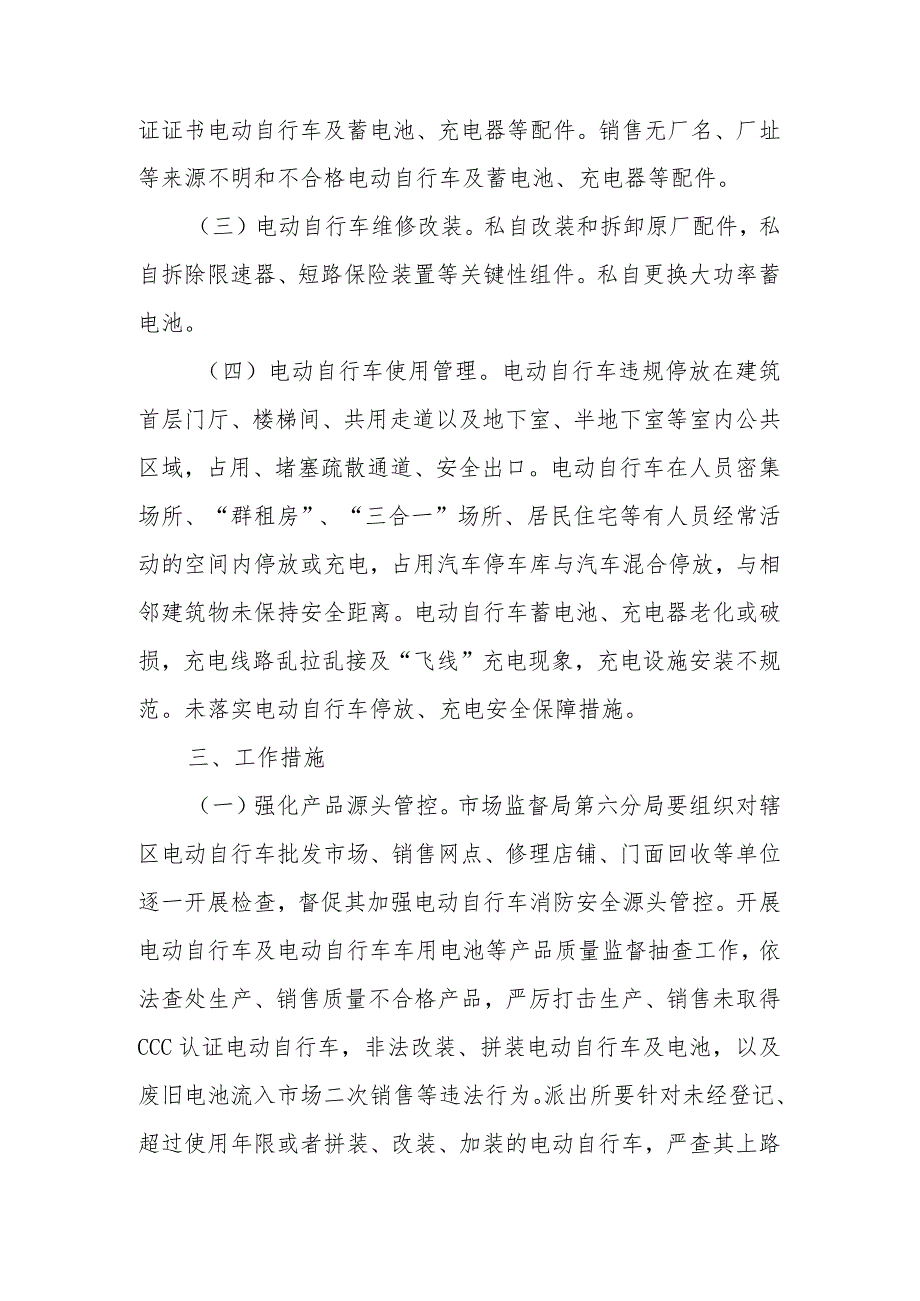 证证书电动自行车及蓄电池、充电器等配件。销售无厂名、厂址
等来源不明和不合格电动自行车及蓄电池、充电器等配件。
（三）电动自行车维修改装。私自改装和拆卸原厂配件，私
自拆除限速器、短路保险装置等关键性组件。私自更换大功率蓄
电池。
（四）电动自行车使用管理。电动自行车违规停放在建筑
首层门厅、楼梯间、共用走道以及地下室、半地下室等室内公共
区域，占用、堵塞疏散通道、安全出口。电动自行车在人员密集
场所、“群租房”、“三合一”场所、居民住宅等有人员经常活
动的空间内停放或充电，占用汽车停车库与汽车混合停放，与相
邻建筑物未保持安全距离。电动自行车蓄电池、充电器老化或破
损，充电线路乱拉乱接及“飞线”充电现象，充电设施安装不规
范。未落实电动自行车停放、充电安全保障措施。
三、工作措施
（一）强化产品源头管控。市场监督局第六分局要组织对辖
区电动自行车批发市场、销售网点、修理店铺、门面回收等单位
逐一开展检查，督促其加强电动自行车消防安全源头管控。开展
电动自行车及电动自行车车用电池等产品质量监督抽查工作，依
法查处生产、销售质量不合格产品，严厉打击生产、销售未取得
CCC认证电动自行车，非法改装、拼装电动自行车及电池，以及
废旧电池流入市场二次销售等违法行为。派出所要针对未经登记、
超过使用年限或者拼装、改装、加装的电动自行车，严查其上路